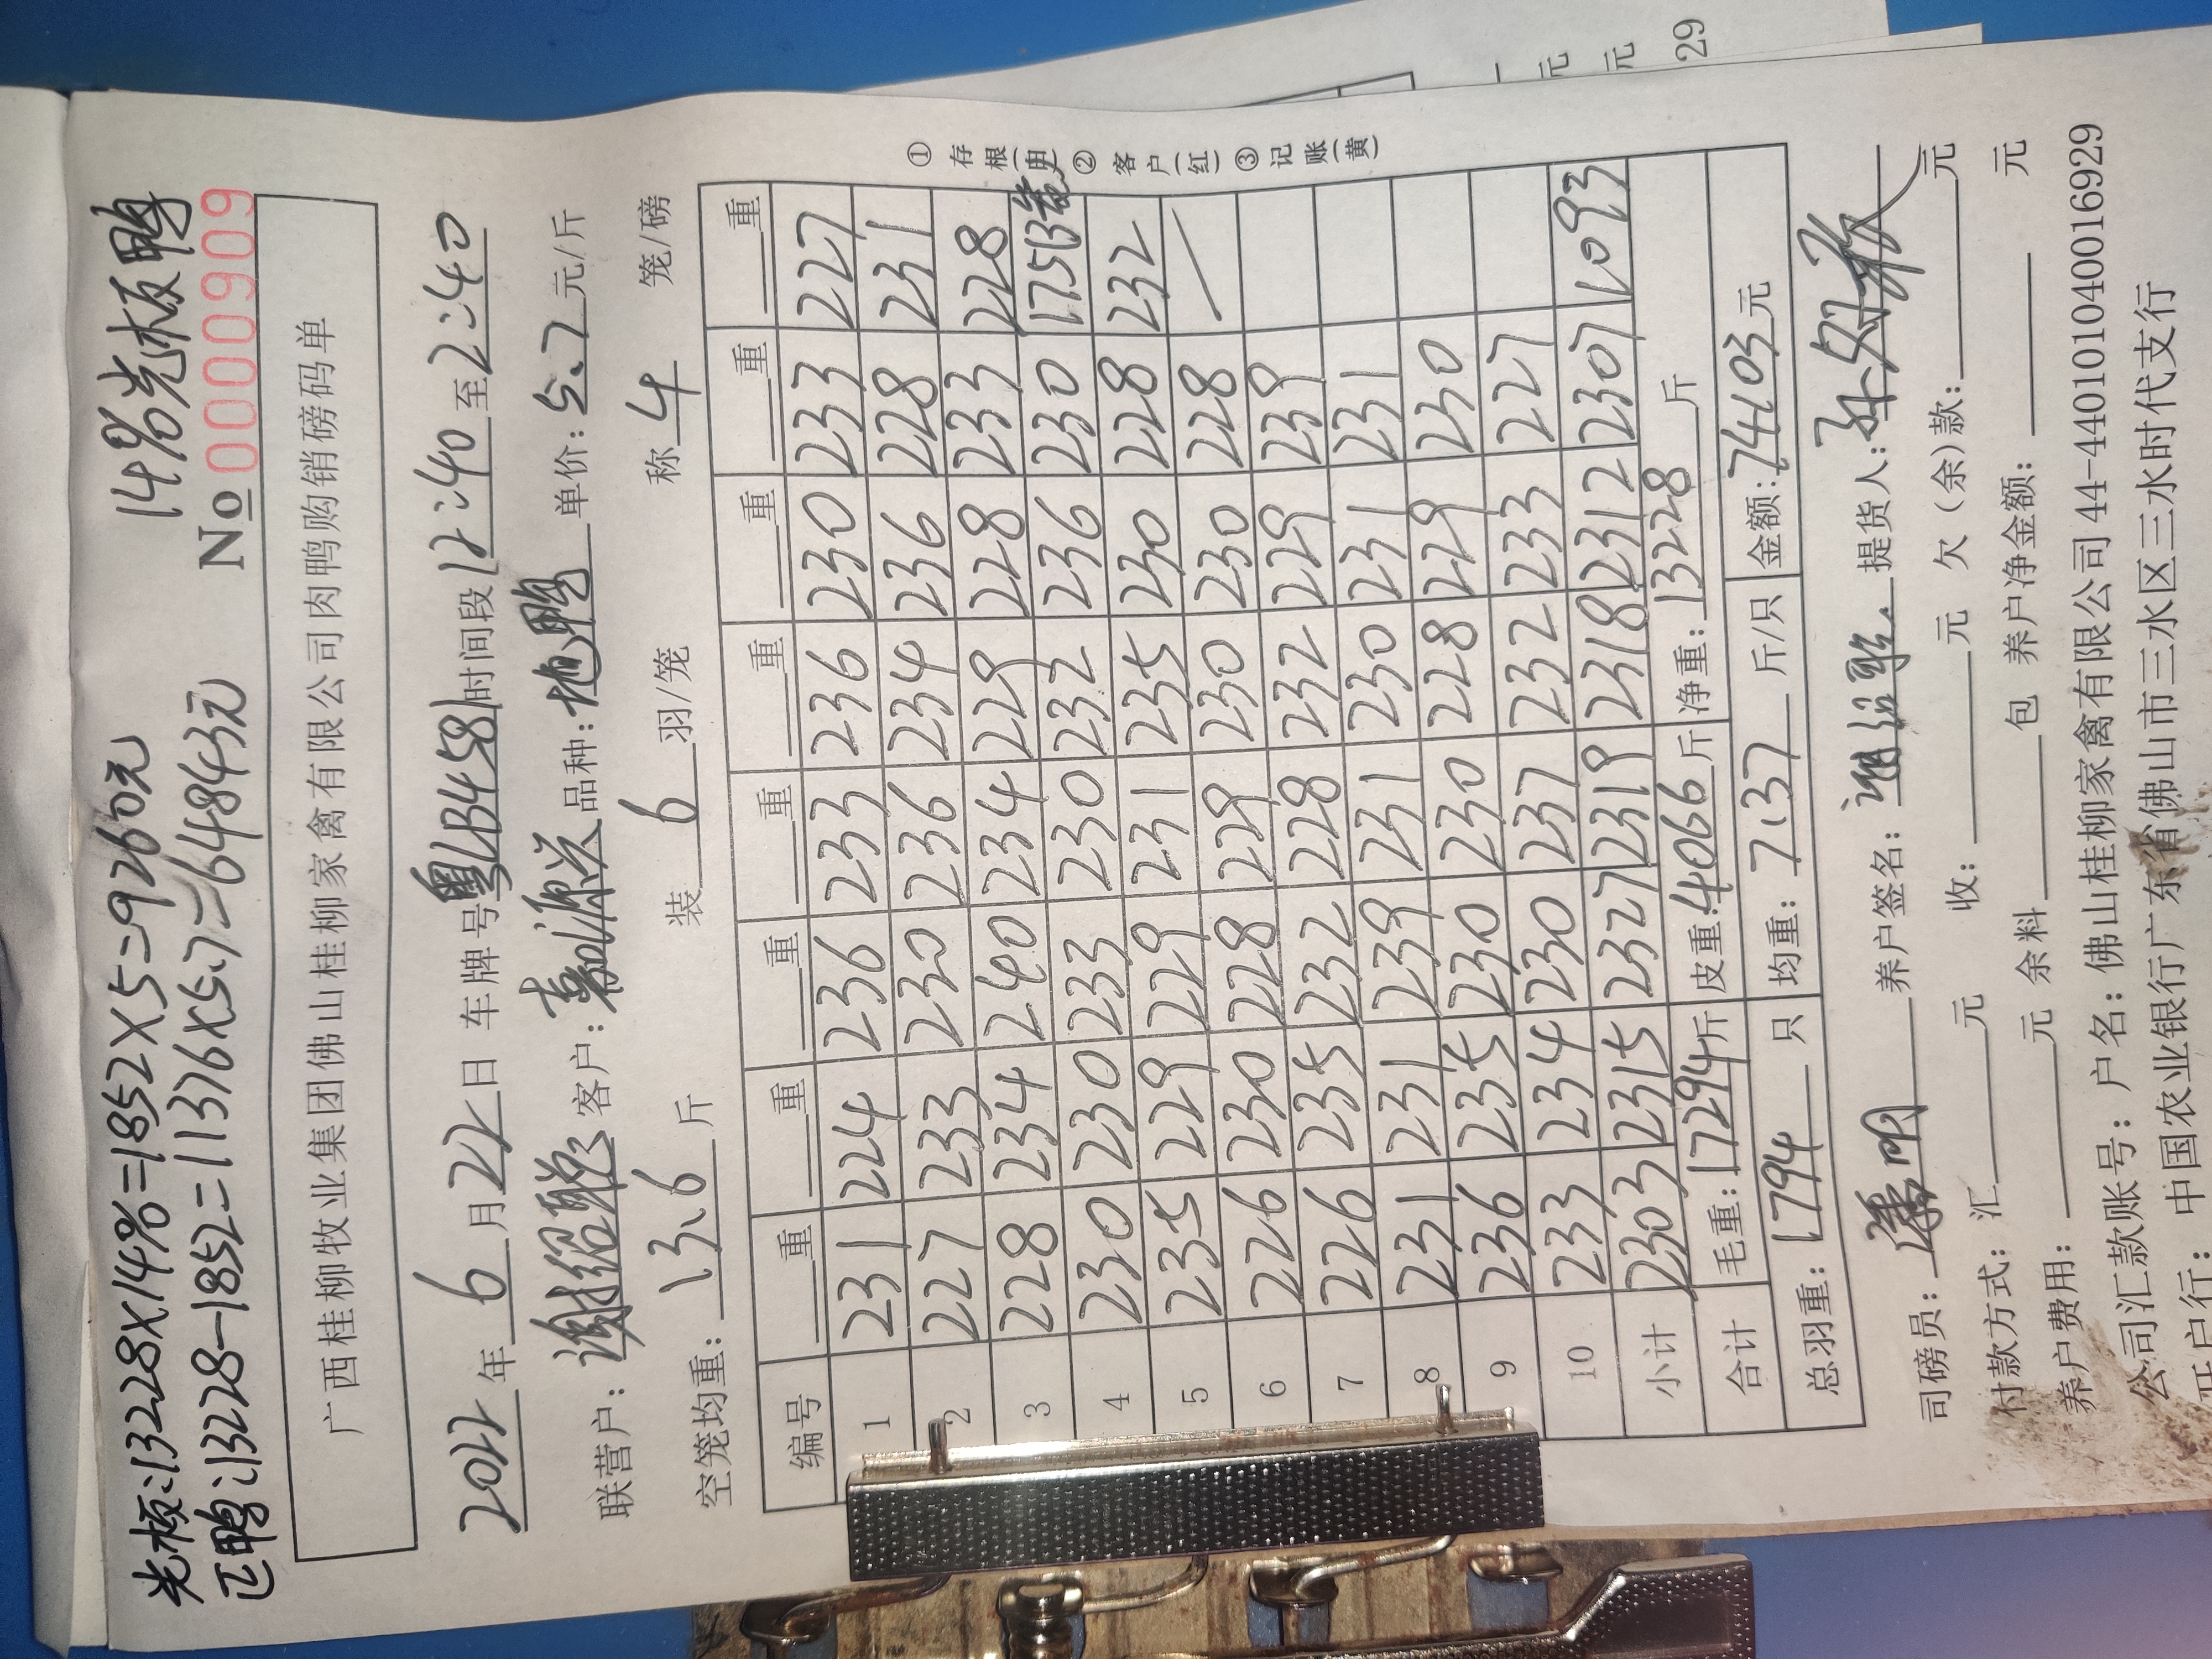 14%光板鸭
光板:13228×14%=1852×5=9260元
正鸭:13228-1852=11376×5.7=64843元
No 0000909
广西桂柳牧业集团佛山桂柳家禽有限公司肉鸭购销磅码单
2022年6月22日 车牌号粤LB458时间段12:40至2:40
联营户: 客户: 品种: 单价:5.7元/斤
空笼均重:13.6斤 装6羽/笼 称4笼/磅
编号 重 重 重 重 重 重 重 重
1 231 224 236 233 236 230 233 227
2 227 233 230 236 234 236 228 231
3 228 234 240 234 229 228 233 228
4 230 230 233 230 232 236 230 175(3笼)
5 235 229 229 231 235 230 228 232
6 226 230 228 229 230 230 228
7 226 235 232 228 232 229 239
8 231 231 239 231 230 231 231
9 236 235 230 230 228 229 230
10 233 234 230 237 232 233 227
小计 2303 2315 2327 2319 2318 2312 2307 1093
合计 毛重:17294斤 皮重:4066斤 净重:13228斤
总羽重:1794只 均重:7.37斤/只 金额:74103元
司磅员: 养户签名: 提货人:
付款方式:汇 元 收: 元 欠(余)款: 元
养户费用: 元 余料 包 养户净金额: 元
公司汇款账号:户名:佛山桂柳家禽有限公司44-440101040016929
开户行:中国农业银行广东省佛山市三水区三水时代支行
①存根(白)②客户(红)③记账(黄)
元
元
29